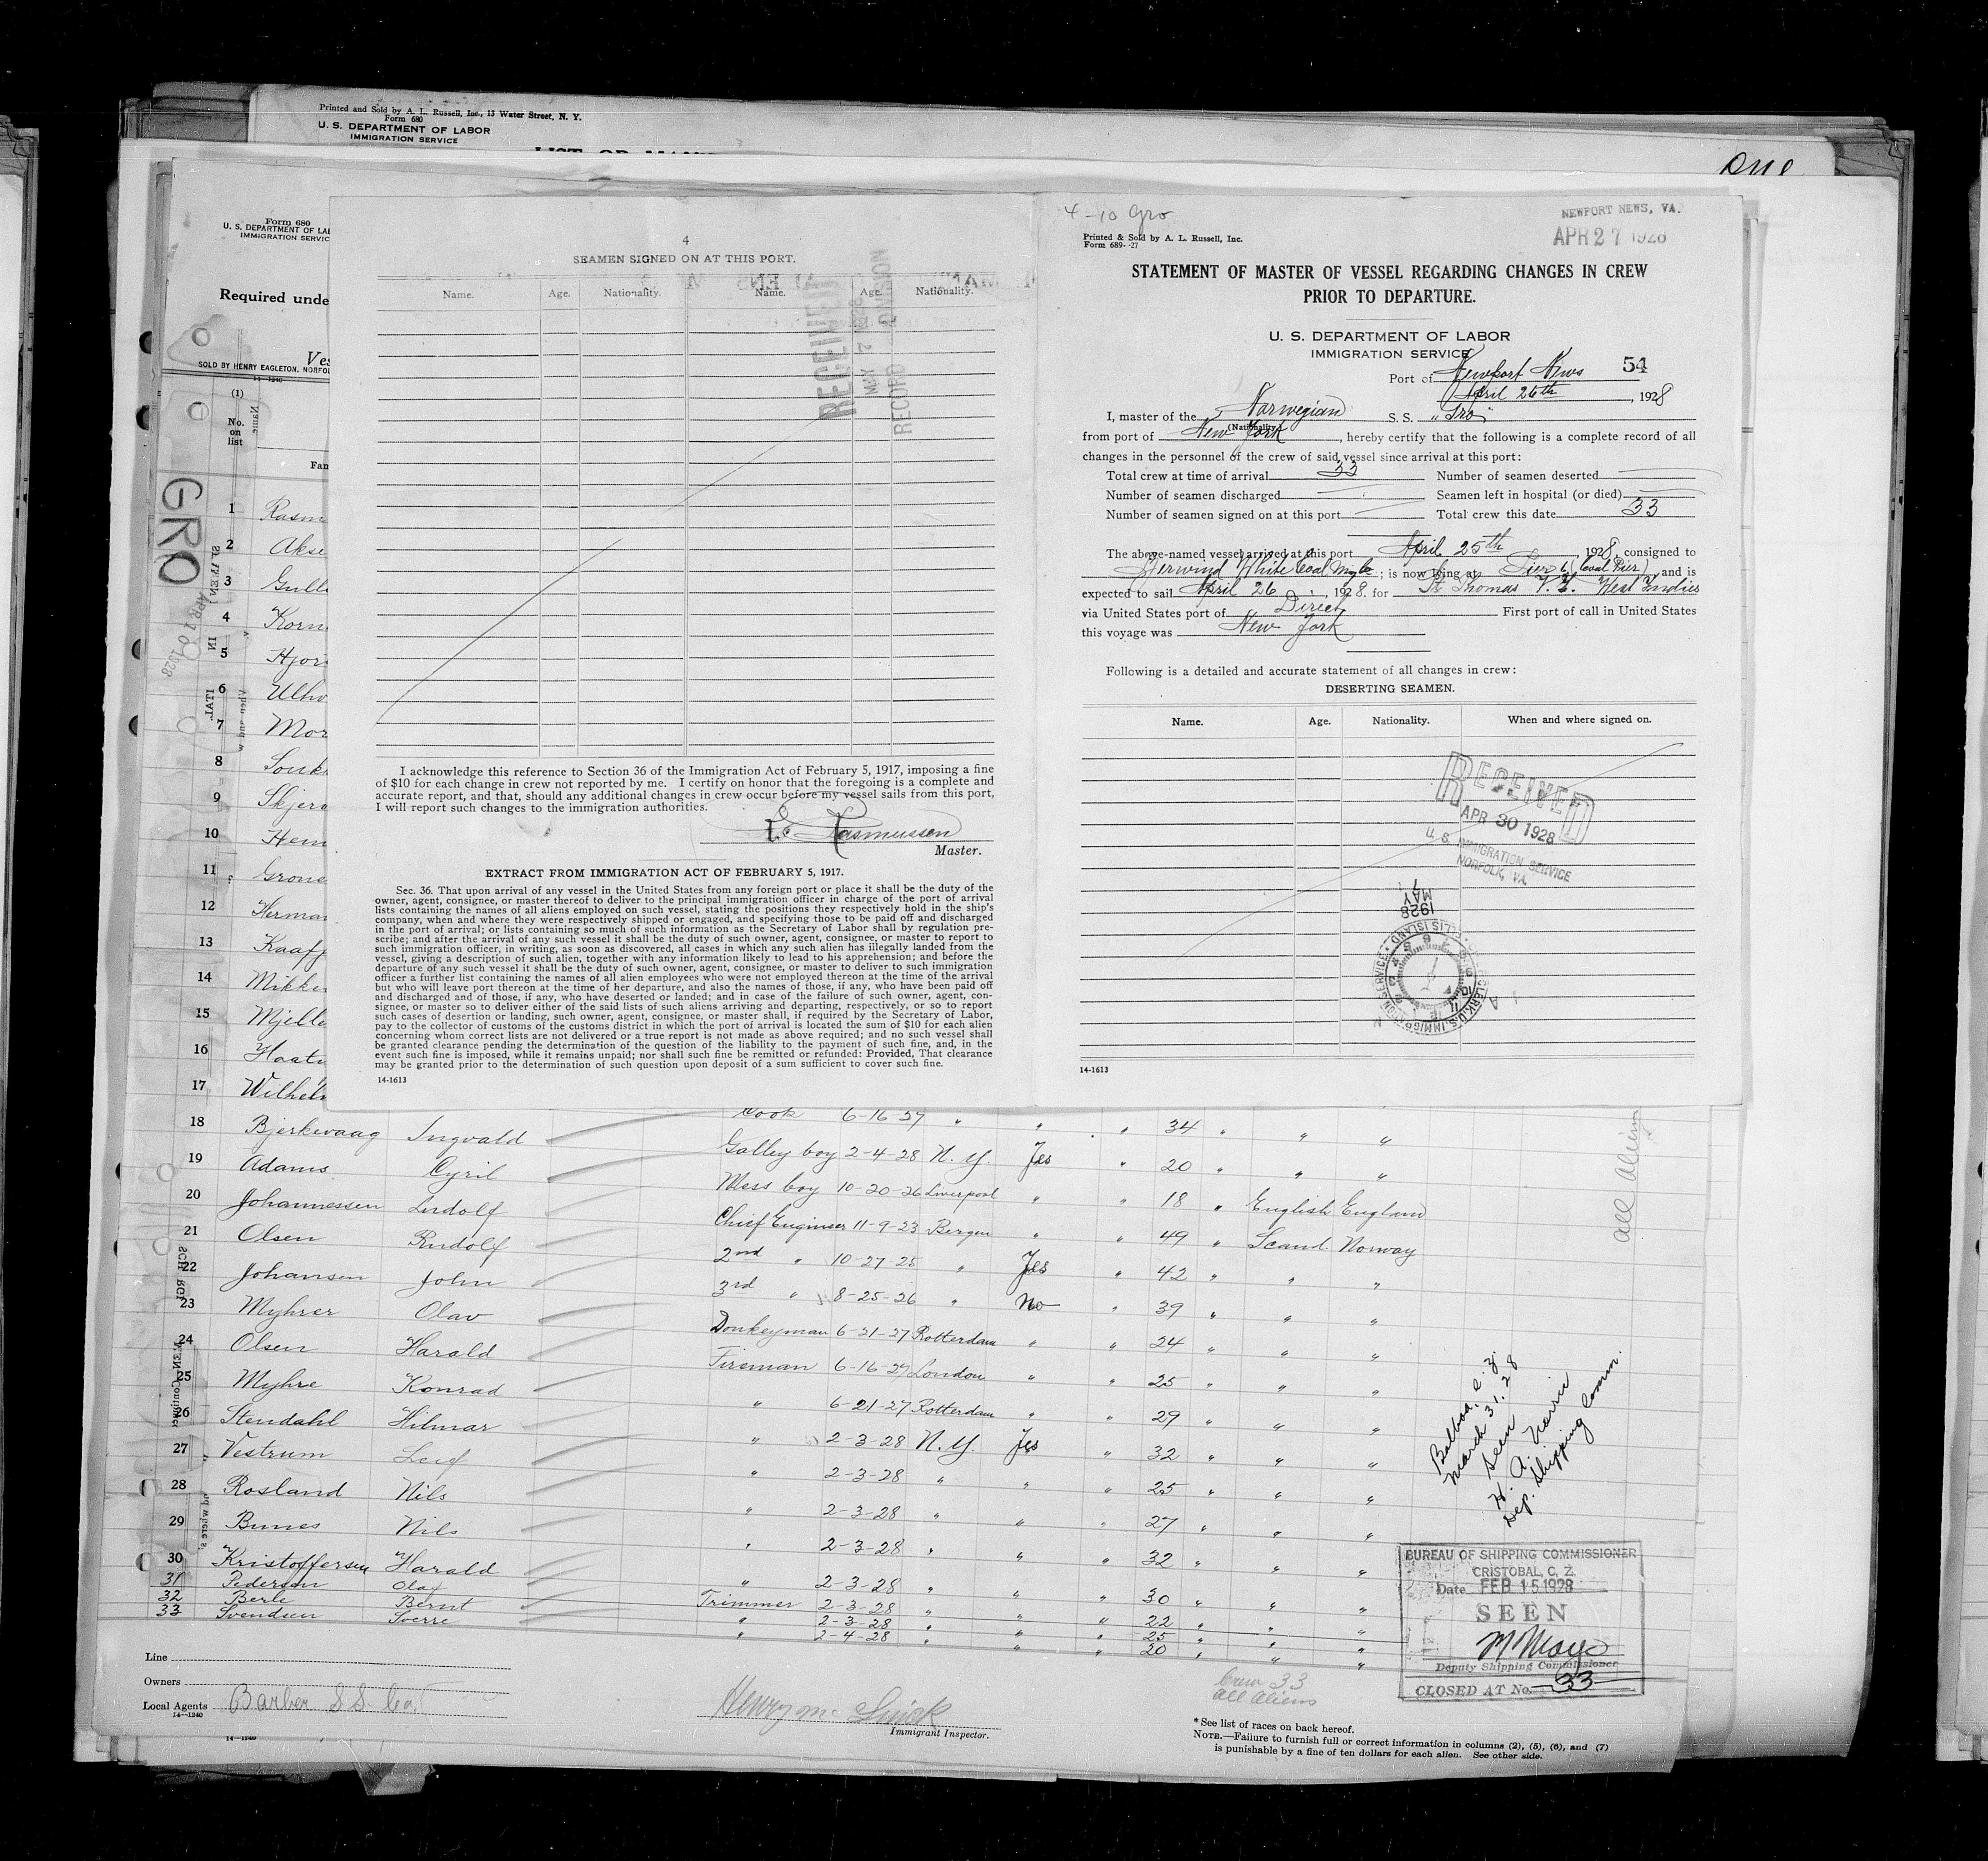 Printed and Sold by A. L. Russell, Inc., 13 Water Street, N. Y.
Form 680
U. S. DEPARTMENT OF LABOR
IMMIGRATION SERVICE
one
Form 680
U. S. DEPARTMENT OF LA
IMMIGRATION SERVIC
Required unde
Ves
SOLD BY HENRY EAGLETON, NORFOL
14-1240
(1)
No.
on
list
Name
Fan
GRO
APR 10 1928
4
SEAMEN SIGNED ON AT THIS PORT.
Name. Age. Nationality. Name. Age. Nationality.
RECEIVED
MAY 7 1928
RECORD DIVISION
I acknowledge this reference to Section 36 of the Immigration Act of February 5, 1917, imposing a fine
of $10 for each change in crew not reported by me. I certify on honor that the foregoing is a complete and
accurate report, and that, should any additional changes in crew occur before my vessel sails from this port,
I will report such changes to the immigration authorities.
Rasmussen
Master.
EXTRACT FROM IMMIGRATION ACT OF FEBRUARY 5, 1917.
Sec. 36. That upon arrival of any vessel in the United States from any foreign port or place it shall be the duty of the
owner, agent, consignee, or master thereof to deliver to the principal immigration officer in charge of the port of arrival
lists containing the names of all aliens employed on such vessel, stating the positions they respectively hold in the ship's
company, when and where they were respectively shipped or engaged, and specifying those to be paid off and discharged
in the port of arrival; or lists containing so much of such information as the Secretary of Labor shall by regulation pre-
scribe; and after the arrival of any such vessel it shall be the duty of such owner, agent, consignee, or master to report to
such immigration officer, in writing, as soon as discovered, all cases in which any such alien has illegally landed from the
vessel, giving a description of such alien, together with any information likely to lead to his apprehension; and before the
departure of any such vessel it shall be the duty of such owner, agent, consignee, or master to deliver to such immigration
officer a further list containing the names of all alien employees who were not employed thereon at the time of the arrival
but who will leave port thereon at the time of her departure, and also the names of those, if any, who have been paid off
and discharged and of those, if any, who have deserted or landed; and in case of the failure of such owner, agent, con-
signee, or master so to deliver either of the said lists of such aliens arriving and departing, respectively, or so to report
such cases of desertion or landing, such owner, agent, consignee, or master shall, if required by the Secretary of Labor,
pay to the collector of customs of the customs district in which the port of arrival is located the sum of $10 for each alien
concerning whom correct lists are not delivered or a true report is not made as above required; and no such vessel shall
be granted clearance pending the determination of the question of the liability to the payment of such fine, and, in the
event such fine is imposed, while it remains unpaid; nor shall such fine be remitted or refunded: Provided, That clearance
may be granted prior to the determination of such question upon deposit of a sum sufficient to cover such fine.
14-1613
4-10 Gro
NEWPORT NEWS, VA.
APR 27 1928
Printed & Sold by A. L. Russell, Inc.
Form 689--27
STATEMENT OF MASTER OF VESSEL REGARDING CHANGES IN CREW
PRIOR TO DEPARTURE.
U. S. DEPARTMENT OF LABOR
IMMIGRATION SERVICE
Port of Newport News 54
April 26th, 1928
I, master of the Norwegian S. S. "Gro"
(Nationality)
from port of New York, hereby certify that the following is a complete record of all
changes in the personnel of the crew of said vessel since arrival at this port:
Total crew at time of arrival 33 Number of seamen deserted
Number of seamen discharged Seamen left in hospital (or died)
Number of seamen signed on at this port Total crew this date 33
The above-named vessel arrived at this port April 25th, 1928, consigned to
Berwind White Coal Mg Co; is now lying at Pier 6 (Coal Pier), and is
expected to sail April 26, 1928 for St Thomas V. I. West Indies
via United States port of Direct First port of call in United States
this voyage was New York
Following is a detailed and accurate statement of all changes in crew:
DESERTING SEAMEN.
Name. Age. Nationality. When and where signed on.
RECEIVED
APR 30 1928
U. S. IMMIGRATION SERVICE
NORFOLK, VA.
1928
MAY
14-1613
1 Rasm
2 Akse
3 Gull
4 Korn
5 Hjor
6 Ulhv
7 Mor
8 Sonk
9 Skjera
10 Hem
11 Grone
12 Herman
13 Kaaf
14 Mikke
15 Mjelle
16 Haat
17 Wilhel
Cook 6-16-27 " " " 34 " " "
18 Bjerkevaag Ingvald Galley boy 2-4-28 N. Y. Yes " 20 " " "
19 Adams Cyril Mess boy 10-20-26 Liverpool " " 18 " English England
20 Johannessen Ludolf Chief Engineer 11-9-23 Bergen " " 49 " Scand. Norway
21 Olsen Rudolf 2nd " 10-27-25 " Yes " 42 " " "
22 Johansen John 3rd " 8-25-26 " No " 39 " " "
23 Myhrer Olav Donkeyman 6-21-27 Rotterdam " " 24 " " "
24 Olsen Harald Fireman 6-16-27 London " " 25 " " "
25 Myhre Konrad " 6-21-27 Rotterdam " " 29 " " "
26 Stendahl Hilmar " 2-3-28 N. Y. Yes " 32 " " "
27 Vestrum Leif " 2-3-28 " " " 25 " " "
28 Rosland Nils " 2-3-28 " " " 27 " " "
29 Bunes Nils " 2-3-28 " " " 32 " " "
30 Kristoffersen Harald " 2-3-28 " " " 30 " " "
31 Pedersen Olaf Trimmer 2-3-28 " " " 22 " " "
32 Berle Bernt " 2-3-28 " " " 25 " " "
33 Svendsen Sverre " 2-4-28 " " " 20 " " "
All Aliens
Balboa, C. Z.
March 31. 28
Seen
H. A. Norris
Dep. Shipping Comm.
BUREAU OF SHIPPING COMMISSIONER
CRISTOBAL, C. Z.
Date FEB 15 1928
SEEN
Deputy Shipping Commissioner
CLOSED AT No. 33
Line
Owners
Local Agents Barber S S Co.
14-1240
Crew 33
All Aliens
Immigrant Inspector.
* See list of races on back hereof.
NOTE.—Failure to furnish full or correct information in columns (2), (5), (6), and (7)
is punishable by a fine of ten dollars for each alien. See other side.
14-1240